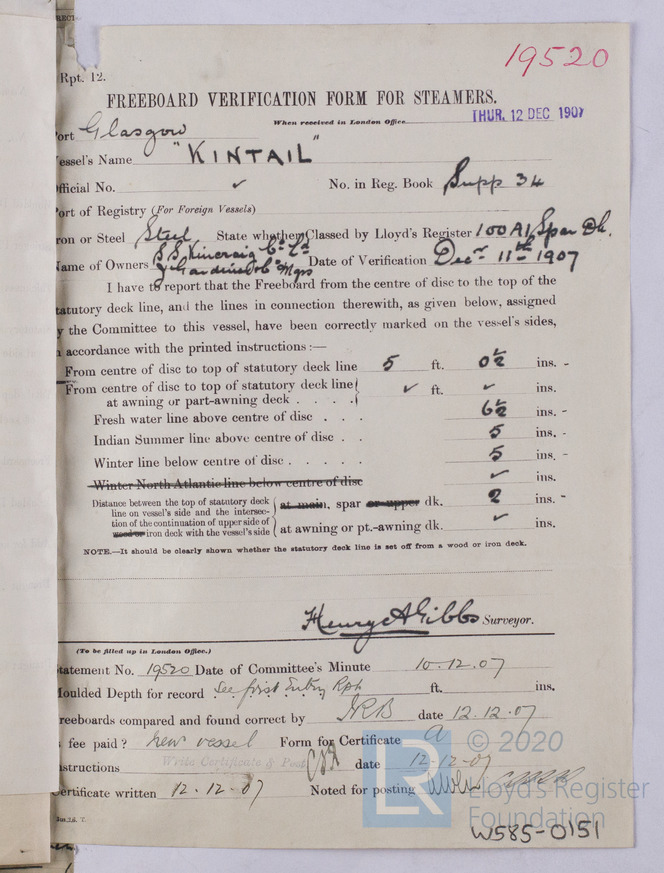 RECT
19520
Rpt. 12.
FREEBOARD VERIFICATION FORM FOR STEAMERS.
When received in London Office
THUR. 12 DEC 1907
ort Glasgow
essel's Name "KINTAIL"
fficial No. ✓ No. in Reg. Book Supp 34
ort of Registry (For Foreign Vessels)
ron or Steel Steel State whether Classed by Lloyd's Register 100 A1 Spar Dk.
ame of Owners S.S. Kincraig Co. Ld
J. Gardiner & Co Mgrs Date of Verification Decr 11th 1907
I have to report that the Freeboard from the centre of disc to the top of the
tatutory deck line, and the lines in connection therewith, as given below, assigned
y the Committee to this vessel, have been correctly marked on the vessel's sides,
n accordance with the printed instructions :—
From centre of disc to top of statutory deck line 5 ft. 0½ ins. -
From centre of disc to top of statutory deck line
at awning or part-awning deck . . . . ✓ ft. ✓ ins.
Fresh water line above centre of disc . . . 6½ ins. -
Indian Summer line above centre of disc . . 5 ins. -
Winter line below centre of disc . . . . . 5 ins. -
Winter North Atlantic line below centre of disc ✓ ins.
Distance between the top of statutory deck
line on vessel's side and the intersec-
tion of the continuation of upper side of
wood or iron deck with the vessel's side
at main, spar or upper dk. 2 ins. -
at awning or pt.-awning dk. ✓ ins.
NOTE.—It should be clearly shown whether the statutory deck line is set off from a wood or iron deck.
Henry A Gibbs Surveyor.
(To be filled up in London Office.)
tatement No. 19520 Date of Committee's Minute 10.12.07
oulded Depth for record See first Entry Rpt ft. ins.
reeboards compared and found correct by date 12.12.07
fee paid? New vessel Form for Certificate a
nstructions Write Certificate & Post date 12-12-07
ertificate written 12.12.07 Noted for posting
LR
© 2020
Lloyd's Register
Foundation
W585-0151